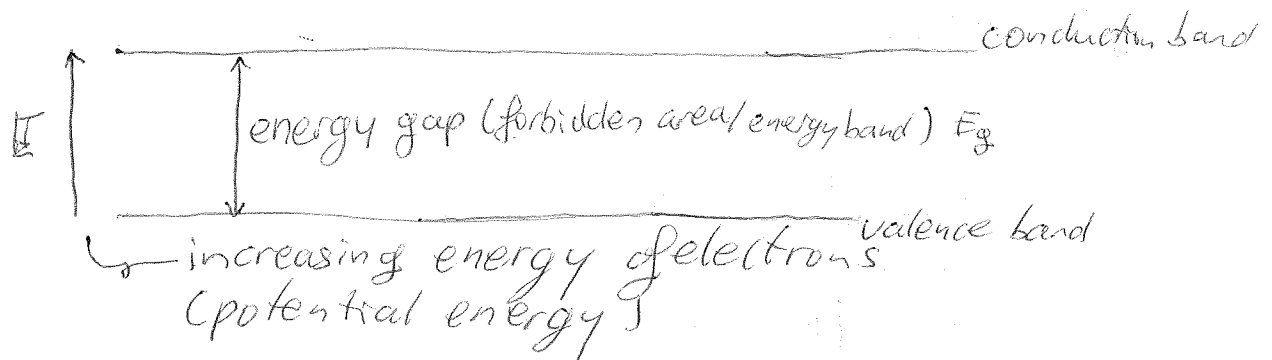 conduction band
E
energy gap (forbidden area/energy band) Eg
valence band
increasing energy of electrons
(potential energy)